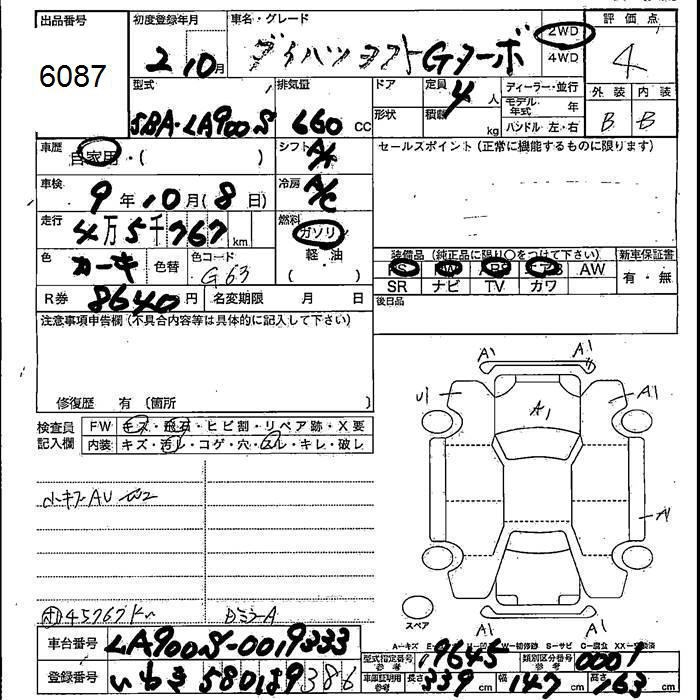 出品番号
6087
初度登録年月
2 10月
車名・グレード
ダイハツ キャスト Gターボ
2WD
4WD
評価点
4
外装 内装
B B
型式
5BA-LA900S
排気量
660 CC
ドア
形状
定員
4 人
積載
kg
ディーラー・並行
モデル年式 年
ハンドル 左・右
車歴
自家用・( )
シフト
A/T
セールスポイント(正常に機能するものに限ります)
車検
9年10月(8日)
冷房
A/C
走行
4万5千767km
燃料
ガソリン
軽油
( )
色
カーキ
色替
色コード
G63
装備品(純正品に限り〇をつけて下さい)
PS PW ABS エアB AW
SR ナビ TV カワ
新車保証書
有・無
R券 8640円
名変期限 月 日
後日品
注意事項申告欄(不具合内容等は具体的に記入して下さい)
修復歴 有(箇所 )
検査員記入欄
FW キズ・飛石・ヒビ割・リペア跡・X要
内装 キズ・汚レ・コゲ・穴・スレ・キレ・破レ
小キズAU
45767km
DミラーA
A1 A1
U1 A1
A1
A1
A1 A1
スペア
車台番号 LA900S-0019333
登録番号 いわき580
型式指定番号 参考 19645
類別区分番号 参考 0001
車庫証明用 参考 長さ 339cm 幅 147cm 高さ 163cm